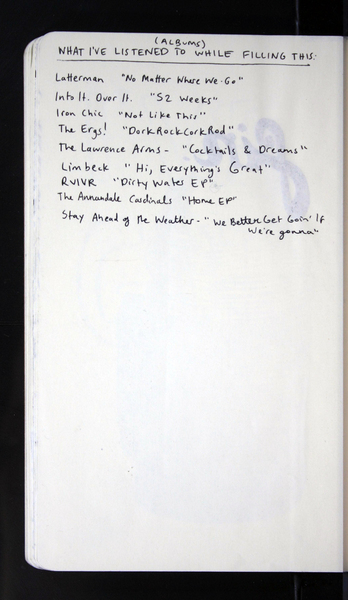 (ALBUMS)
WHAT I'VE LISTENED TO WHILE FILLING THIS:
Latterman "No Matter Where We Go"
Into It. Over It. "52 Weeks"
Iron Chic "Not Like This"
The Ergs! "DorkRockCorkRod"
The Lawrence Arms - "Cocktails & Dreams"
Limbeck "Hi, Everything's Great"
RVIVR "Dirty Water EP"
The Annandale Cardinals "Home EP"
Stay Ahead of The Weather - "We Better Get Goin' If
We're gonna"